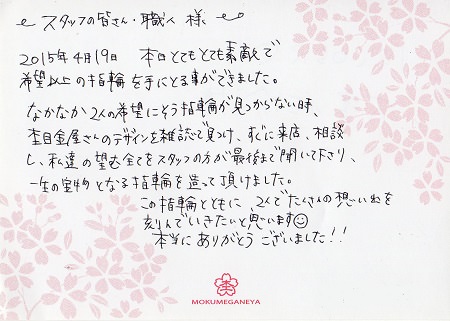 スタッフの皆さん・職人 様
2015年4月19日 本日とてもとても素敵で
希望以上の指輪を手にとる事ができました。
なかなか2人の希望にそう指輪が見つからない時、
杢目金屋さんのデザインを雑誌で見つけ、すぐに来店、相談
し、私達の望む全てをスタッフの方が最後まで聞いて下さり、
一生の宝物となる指輪を造って頂けました。
この指輪とともに、2人でたくさんの想いれを
刻んでいきたいと思います
本当にありがとうございました!!
MOKUMEGANEYA